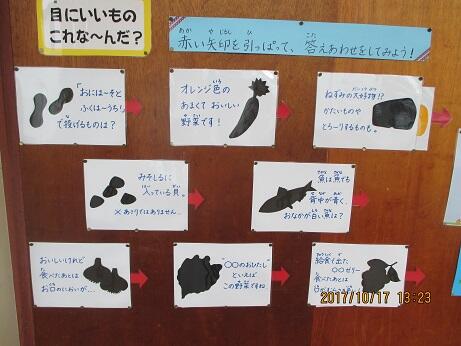 目にいいもの
これな～んだ？
赤い矢印を引っぱって、答えあわせをしてみよう！
あか やじるし ひ こた
「おにはーそと
ふくはーうち！」
で投げるものは？
オレンジ色の
あまくて おいしい
野菜です！
ねずみの大好物!?
かたいものや
とろ～りするものも。
みそしるに
入っている貝。
※あさりではありません…
魚は魚でも
背中が青く、
おなかが白い魚は？
おいしいけれど
食べたあとは
お口のにおいが…
"〇〇のおひたし"
といえば
この野菜ですね
給食で出た
〇〇ゼリー
食べたあとは
2017/10/17 13:23